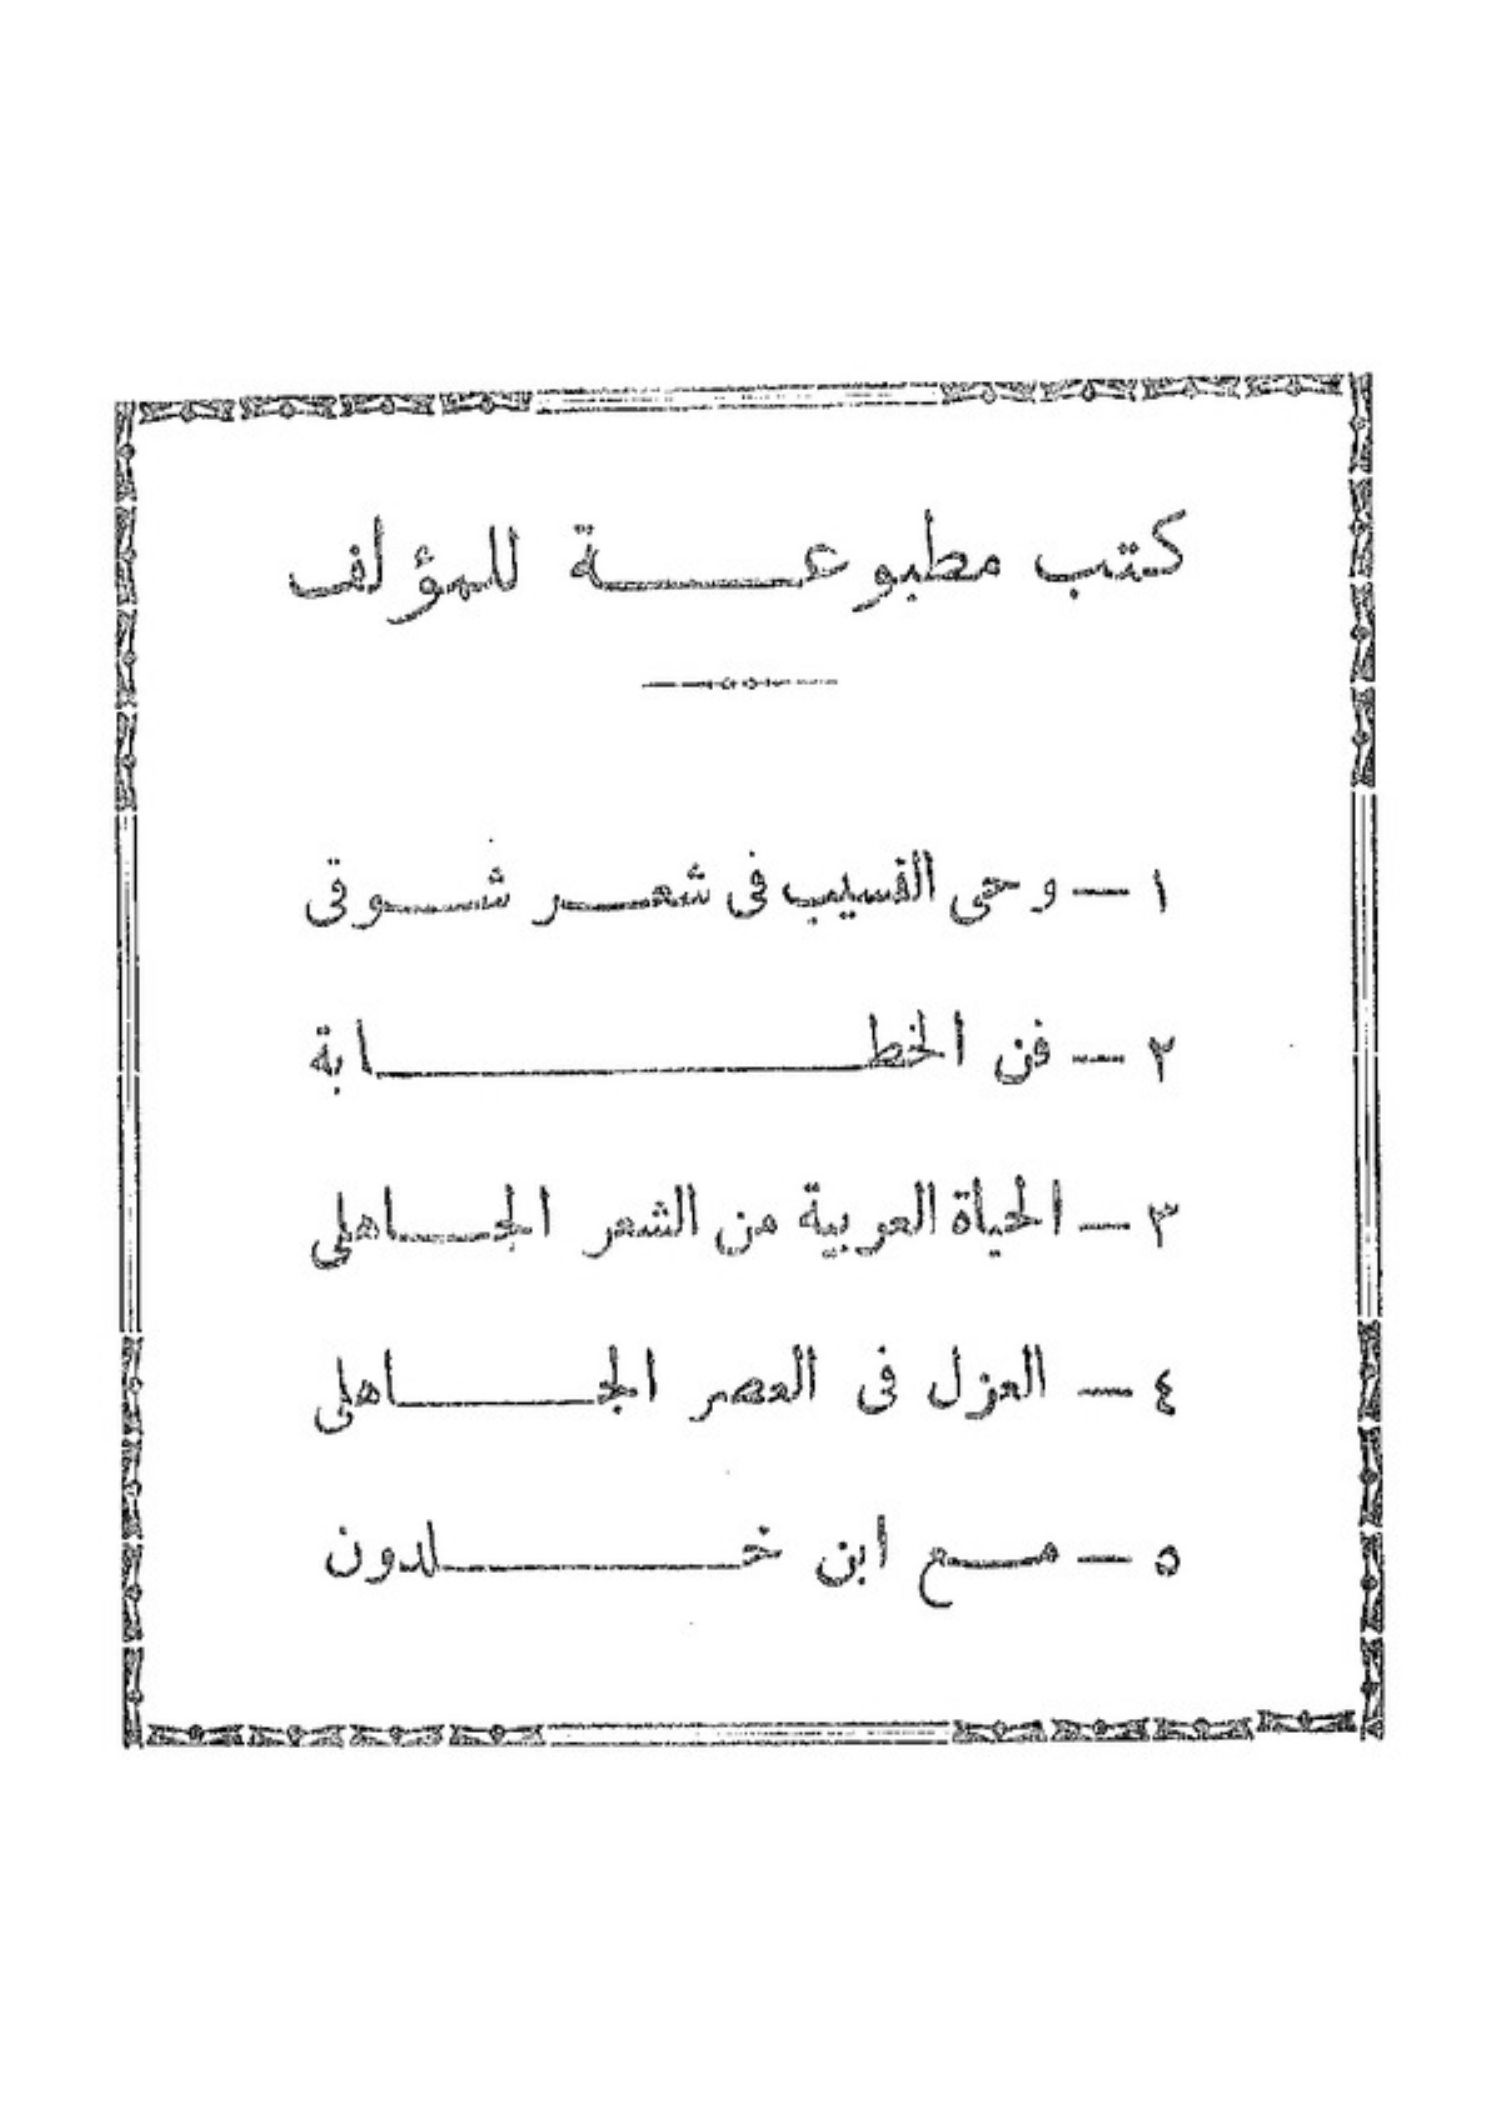 كتب مطبوعة للمؤلف
١ — وحى النسيب فى شعر شوقى
٢ — فن الخطابة
٣ — الحياة العربية من الشعر الجاهلى
٤ — الغزل فى العصر الجاهلى
٥ — مع ابن خلدون